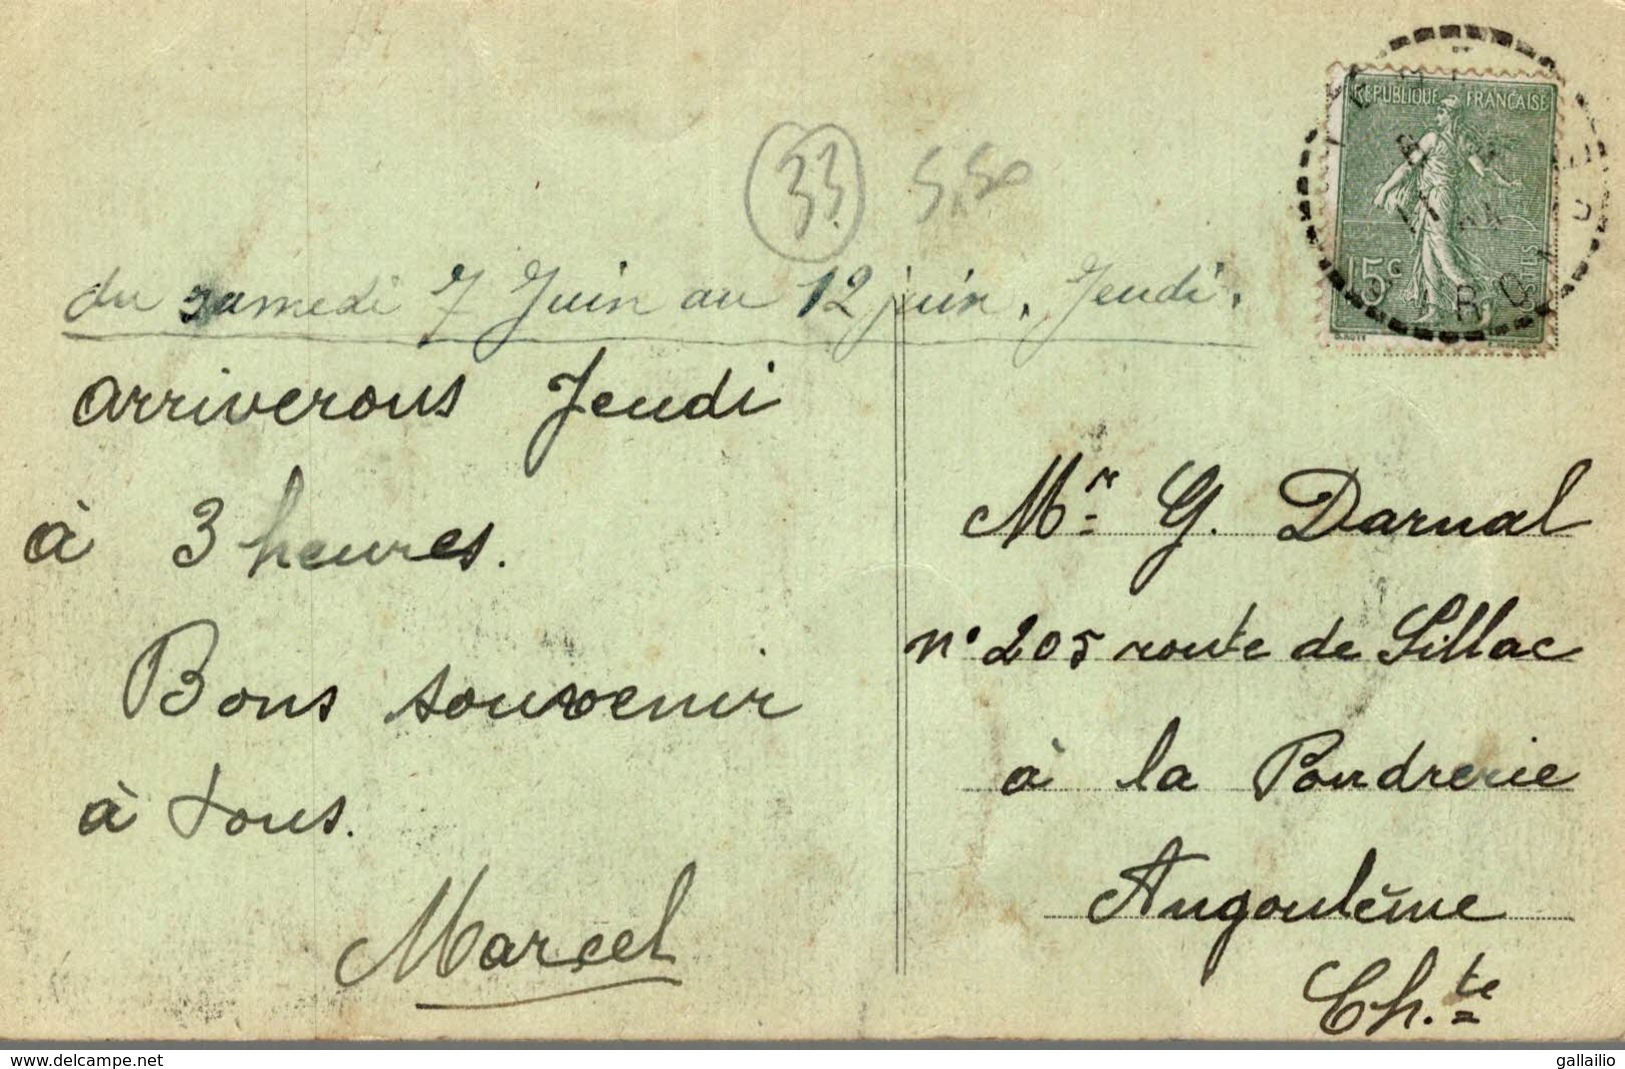 33
5,50
RÉPUBLIQUE FRANÇAISE
15c
du samedi 7 Juin au 12 juin, Jeudi.
arriverons Jeudi
à 3 heures.
Bons souvenir
à tous.
Marcel
Mr G. Darnal
n° 205 route de Sillac
à la Poudrerie
Angoulême
Ch.te
delcampe.net
gallailio